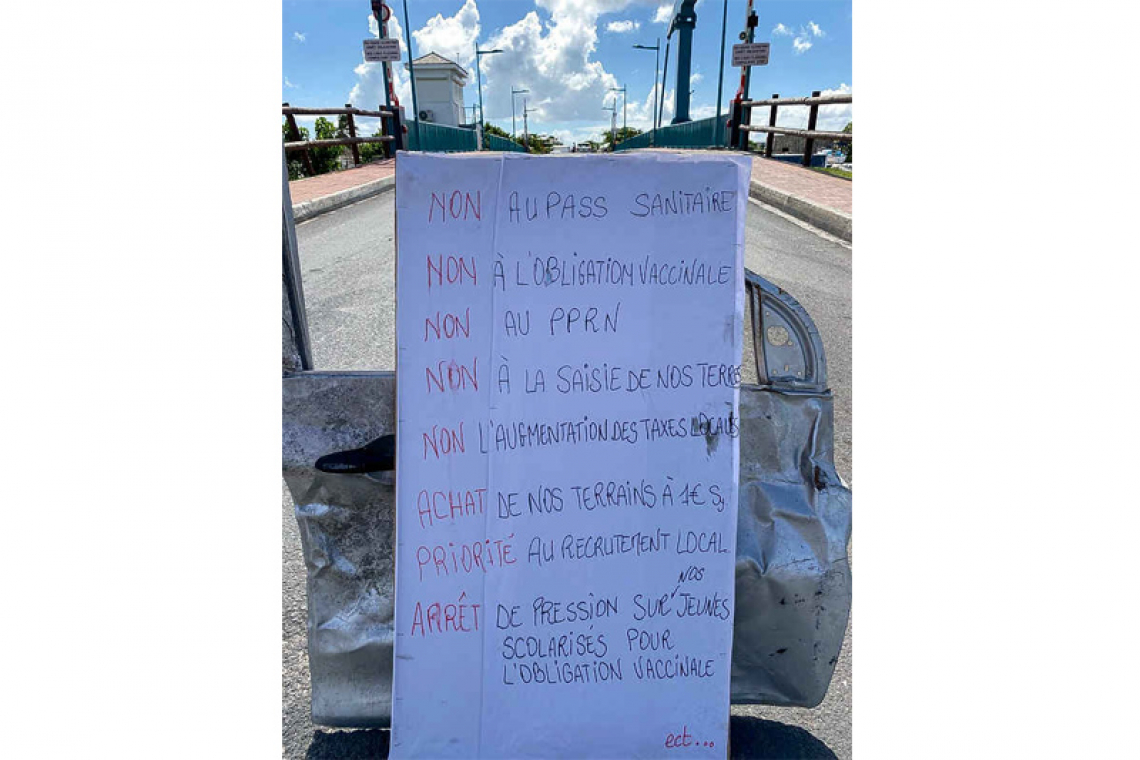 NON AU PASS SANITAIRE
NON À L'OBLIGATION VACCINALE
NON AU PPRN
NON À LA SAISIE DE NOS TERRES
NON L'AUGMENTATION DES TAXES LOCALES
ACHAT DE NOS TERRAINS À 1€ S,
PRIORITÉ AU RECRUTEMENT LOCAL
ARRÊT DE PRESSION SUR NOS JEUNES
SCOLARISÉS POUR
L'OBLIGATION VACCINALE
ect...